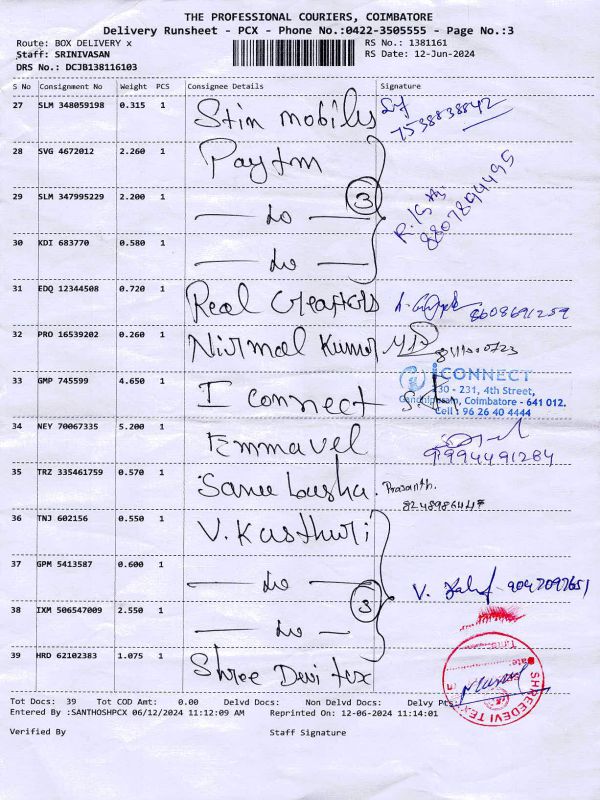 THE PROFESSIONAL COURIERS, COIMBATORE
Delivery Runsheet - PCX - Phone No.:0422-3505555 - Page No.:3
Route: BOX DELIVERY x RS No.: 1381161
Staff: SRINIVASAN RS Date: 12-Jun-2024
DRS No.: DCJB138116103
S No Consignment No Weight PCS Consignee Details Signature
27 SLM 348059198 0.315 1 Stin mobiles 7538838842
28 SVG 4672012 2.260 1 Paytm
29 SLM 347995229 2.200 1 — do — 3 8807894495
30 KDI 683770 0.580 1 — do —
31 EDQ 12344508 0.720 1 Real Creators 8608691259
32 PRO 16539202 0.260 1 Nirmal Kumar
33 GMP 745599 4.650 1 I connect
iCONNECT
30 - 231, 4th Street,
Gandhipuram, Coimbatore - 641 012.
Cell : 96 26 40 4444
34 NEY 70067335 5.200 1 Emmavel 9994491284
35 TRZ 335461759 0.570 1 Prasanth.
8248986447
36 TNJ 602156 0.550 1 V. Kasthuri
37 GPM 5413587 0.600 1 — do — V. 9047097651
38 IXM 506547009 2.550 1 — do — 3
39 HRD 62102383 1.075 1 Shree Devi tex
SHREEDEVI TEX
Tot Docs: 39 Tot COD Amt: 0.00 Delvd Docs: Non Delvd Docs: Delvy Pts:
Entered By :SANTHOSHPCX 06/12/2024 11:12:09 AM Reprinted On: 12-06-2024 11:14:01
Verified By Staff Signature